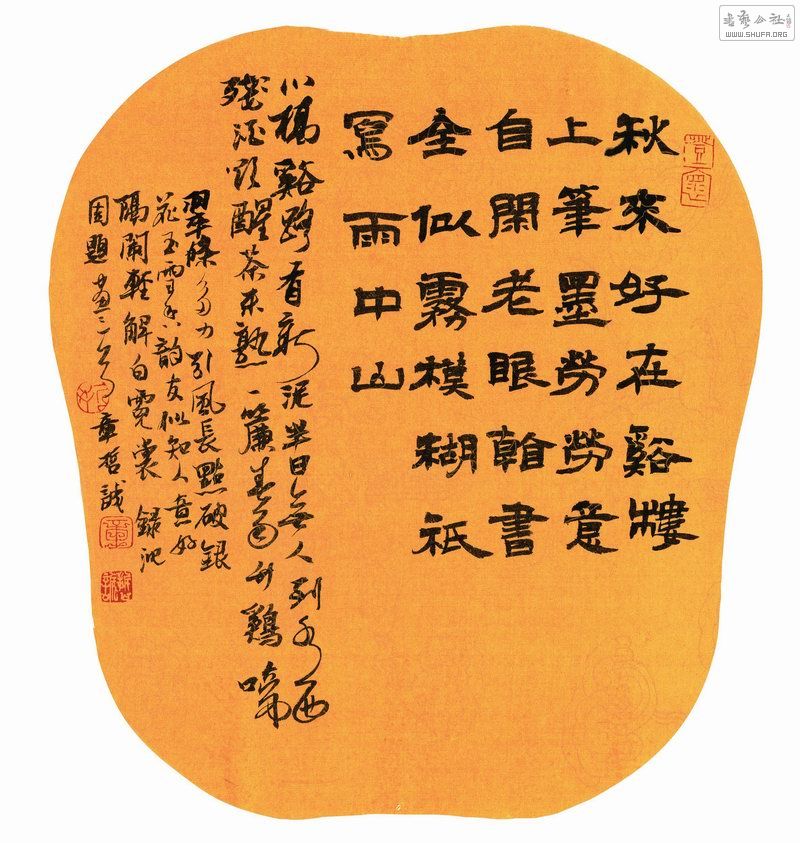 秋來好在谿樓
上筆墨勞勞意
自閑老眼翰書
全似霧模糊祇
寫雨中山
小橋谿路有新泥半日無人到水西
殘酒欲醒茶未熟一簾春雨竹鷄啼
翠條多力引風長點破銀
花玉雪香韻友似知人意好
隔闌輕解白霓裳 錄沈
周題畫三首 章哲誠
書藝公社
WWW.SHUFA.ORG